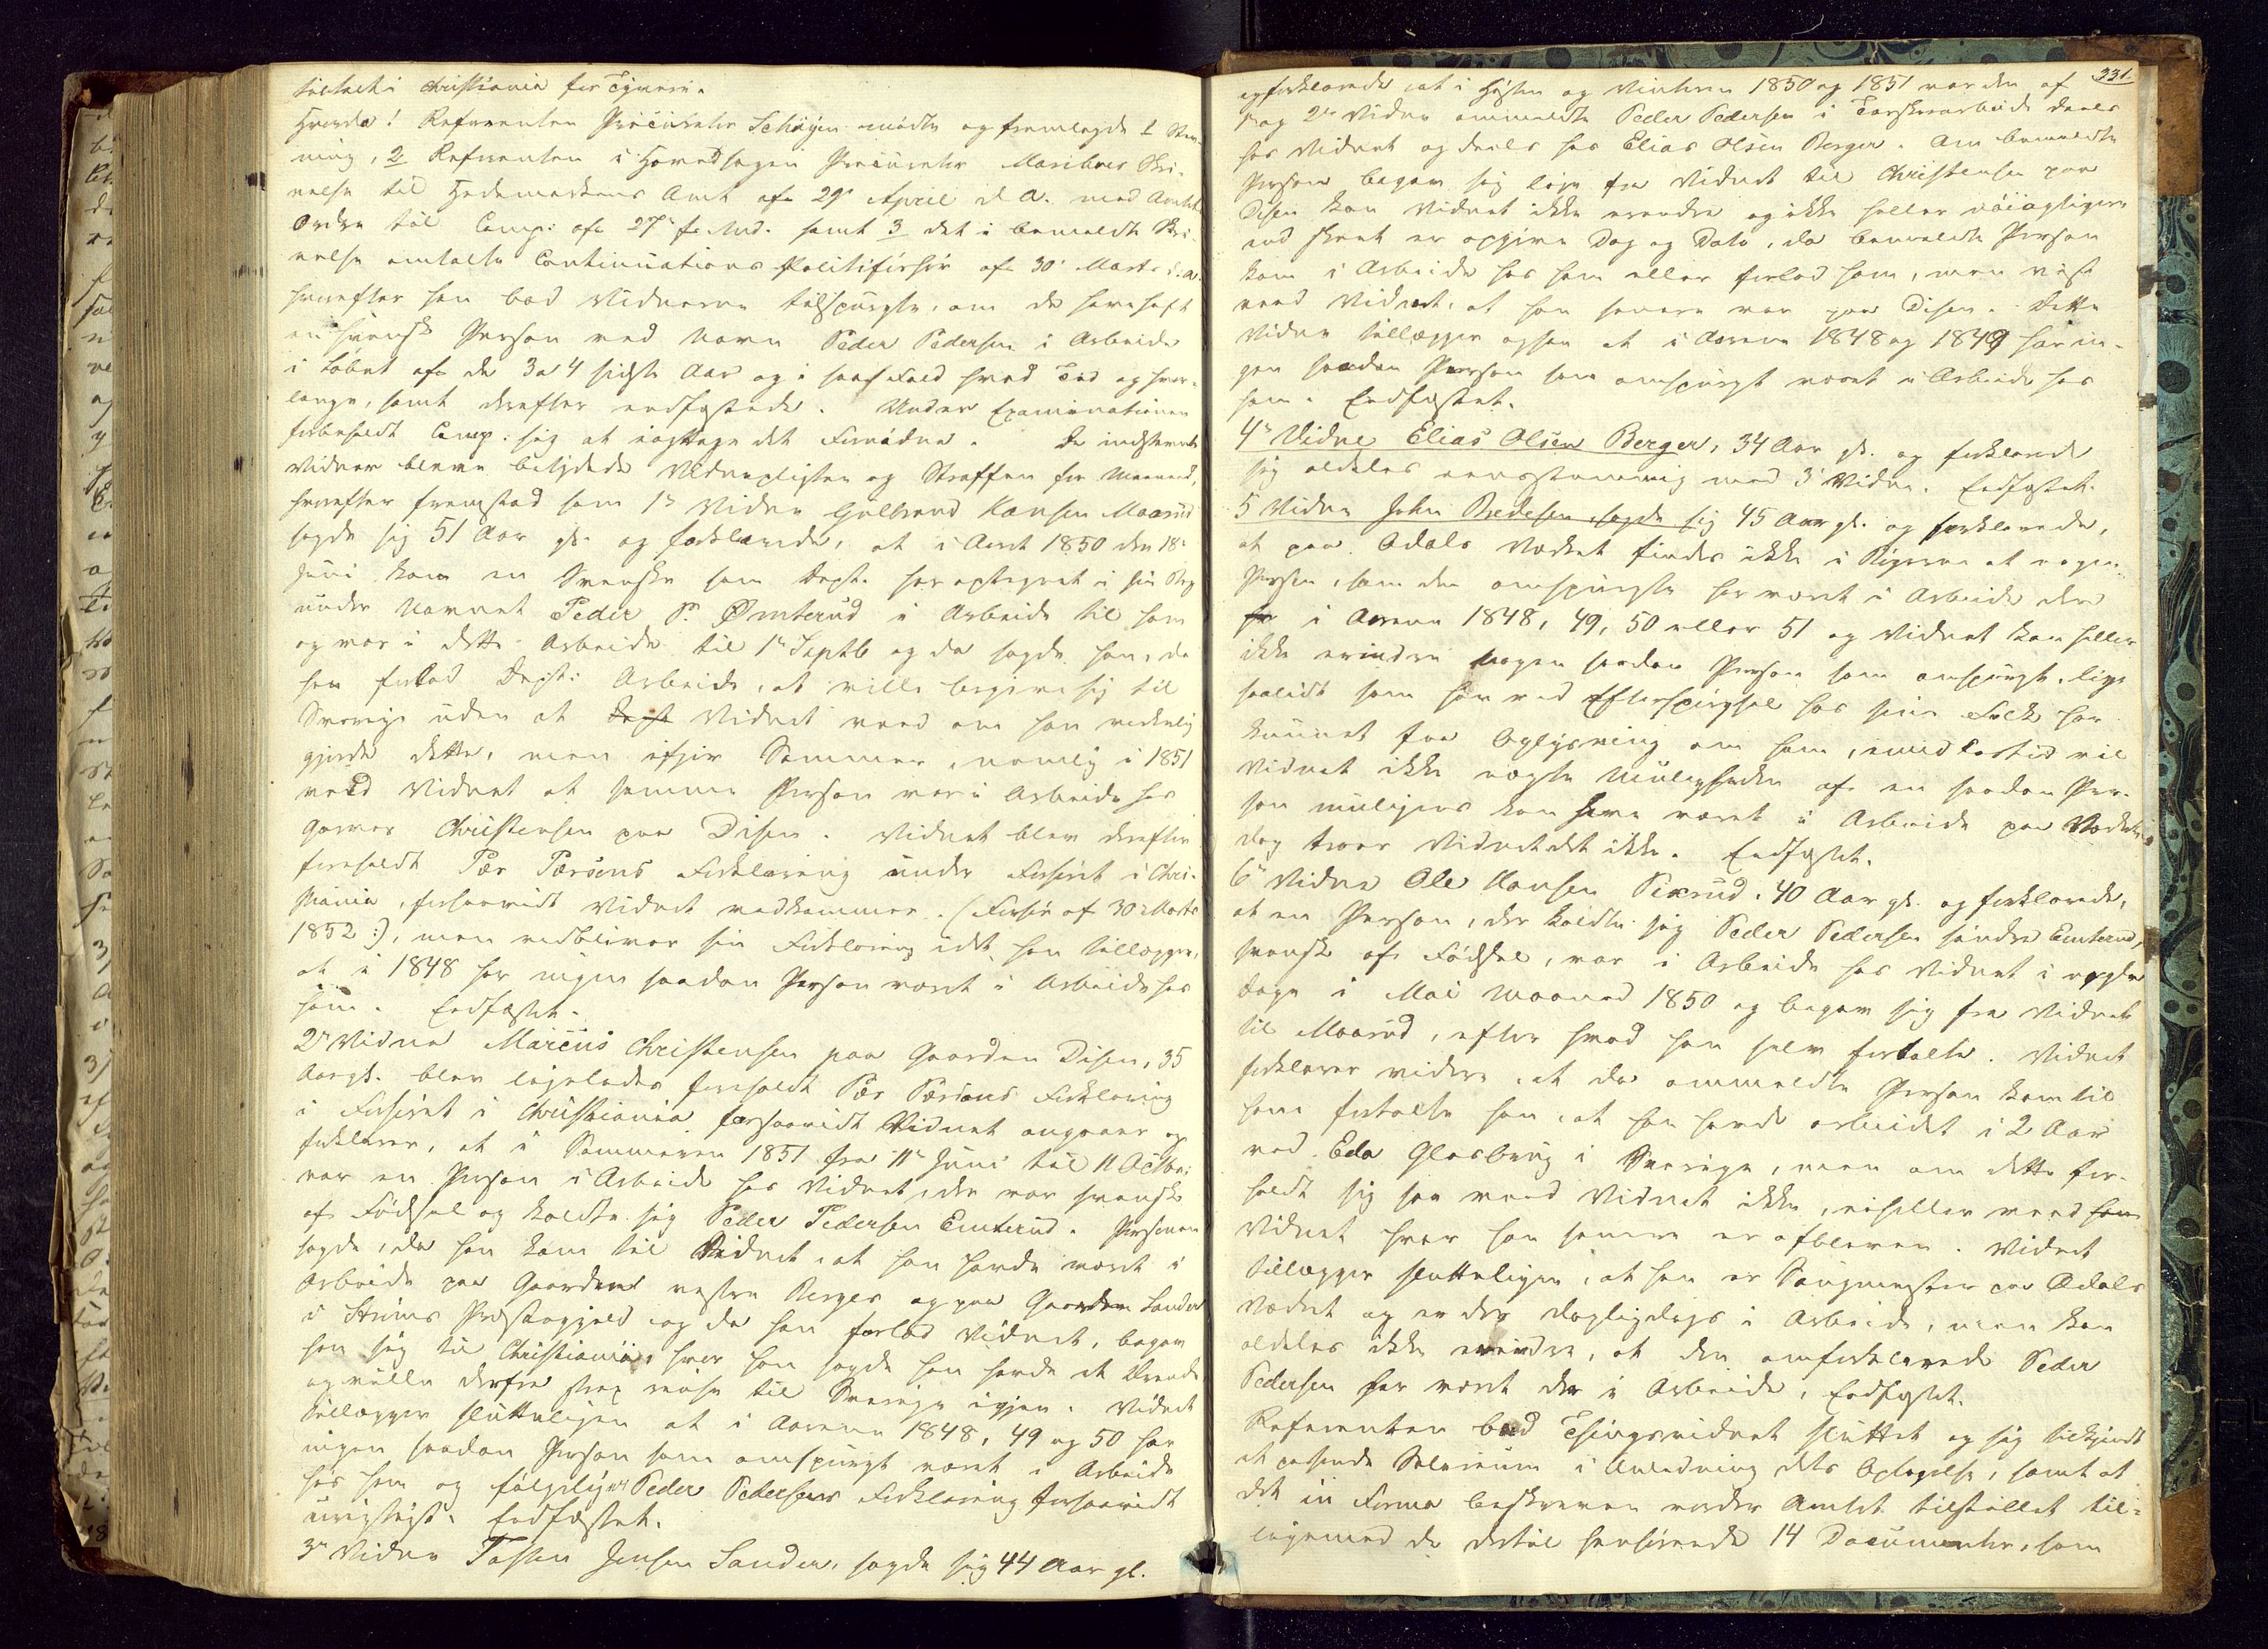 tiltalt i Christiania for Tyveri.
Hvorda! Referenten Procurator Schøyen mødte og fremlagde 1 Stev-
ning, 2 Referenten i Hovedsagen Procurator Mariboes Skri-
velse til Hedemarkens Amt af 29 April d. A. med Amtets
Ordre til Comp: af 27 f. Md. samt 3 det i bemeldte Skri-
velse omtalte Continuations Politiforhør af 30 Marts d. A.
hvorefter han bad Vidnerne tilspurgte, om de have havt
en svensk Person ved Navn Peder Pedersen i Arbeide
i Løbet af de 3 a 4 sidste Aar og i saa Fald hvad Tid og hvor-
længe, samt derefter eedfæstede. Under Examinationen
forbeholdt Comp. sig at iagttage det Fornødne. De indstevnte
Vidner bleve betydede Vidnepligten og Straffen for Meeneed,
hvorefter fremstod som 1ste Vidne Gulbrand Hansen Maarud
sagde sig 51 Aar gl. og forklarede, at i Aaret 1850 den 18
Juni kom en Svenske som Dept. har optegnet i sin Bog
under Navnet Peder P. Ømterud i Arbeide til ham
og var i dette Arbeide til 1ste Septb og da sagde han, da
han forlod Dept: Arbeide, at ville begive sig til
Sverige uden at Dept Vidnet veed om han virkelig
gjorde dette, men ifjor Sommer, nemlig i 1851
veed Vidnet at samme Person var i Arbeide hos
Garver Christensen paa Disen. Vidnet blev derefter
foreholdt Pær Pærsons Forklaring under Forhøret i Chri-
stiania, forsaavidt Vidnet vedkommer (Forhør af 30 Marts
1852:), men vedbliver sin Forklaring idet han tillægger,
at i 1848 har ingen saadan Person været i Arbeide hos
ham. Eedfæstet.
2 Vidne Marcus Christensen paa Gaarden Disen, 35
Aar gl. blev ligeledes foreholdt Pær Pærsons Forklaring
i Forhøret i Christiania forsaavidt Vidnet angaaer og
forklarer, at i Sommeren 1851 fra 11 Juni til 11 Octbr:
var en Person i Arbeide hos Vidnet, der var svensk
af Fødsel og kaldte sig Peder Pedersen Emterud. Personen
sagde, da han kom til Vidnet, at han havde været i
Arbeide paa Gaarden vestre Berger og paa Gaarden Sander
i Strøms Præstegjeld og da han forlod Vidnet, begav
han sig til Christiania, hvor han sagde han havde et Ærende
og ville derfra strax reise til Sverige igjen. Vidnet
tillægger sluttelig at i Aarene 1848, 49 og 50 har
ingen saadan Person som omspurgt været i Arbeide
hos ham og følgelig er Peder Pedersens Forklaring forsaavidt
urigtigt. Eedfæstet.
3 Vidne Tosten Jensen Sander, sagde sig 44 Aar gl.
331.
og forklarede, at i Høsten og Vinteren 1850 og 1851 var den af
1 og 2 Vidne ommeldte Peder Pedersen i Tærskearbeide deels
hos Vidnet og deels hos Elias Olsen Berger. Om bemeldte
Person begav sig lige fra Vidnet til Christensen paa
Disen kan Vidnet ikke erindre og ikke heller nøiagtigere
end skeet er opgive Dag og Dato, da bemeldte Person
kom i Arbeide hos ham eller forlod ham, men vist
veed Vidnet, at han senere var paa Disen. Dette
Vidne tillægger ogsaa at i Aarene 1848 og 1849 har in-
gen saadan Person som omspurgt været i Arbeide hos
ham. Eedfæstet.
4 Vidne Elias Olsen Berger, 34 Aar gl. og forklarede
sig aldeles eensstemmig med 3 Vidne. Eedfæstet.
5 Vidne John Bredesen, sagde sig 45 Aar gl. og forklarede,
at paa Odals Værket findes ikke i Bøgerne at nogen
Person, som den omspurgte har været i Arbeide der
i Aarene 1848, 49, 50 eller 51 og Vidnet kan heller
ikke erindre nogen saadan Person som omspurgt, lige
saalidt som han ved Efterspørgsel hos sine Folk har
kunnet faae Oplysning om ham, imidlertid vil
Vidnet ikke nægte Muligheden af en saadan Per-
son muligens kan have været i Arbeide paa Værket,
dog troer Vidnet det ikke. Eedfæstet.
6 Vidne Ole Hansen Pexrud, 40 Aar gl. og forklarede,
at en Person, der kaldte sig Peder Pedersen søndre Emterud,
svensk af Fødsel, var i Arbeide hos Vidnet i nogle
Dage i Mai Maaned 1850 og begav sig fra Vidnet
til Maarud, efter hvad han selv fortalte. Vidnet
forklarer videre, at da ommeldte Person kom til
ham fortalte han, at han havde arbeidet i 2 Aar
ved Eda Glasbrug i Sverige, men om dette for-
holdt sig saa veed Vidnet ikke, eiheller veed han
Vidnet hvor han senere er afbleven. Vidnet
tillægger sluttelig, at han er Saugmester paa Odals
Værket og er der dagligdags i Arbeide, men kan
aldeles ikke erindre, at den omforklarede Peder
Pedersen har været der i Arbeide, Eedfæstet.
Referenten bad Thingsvidnet sluttet og sig tilkjendt
et passende Salarium i Anledning dets Optagelse, samt at
det in Forma beskreven vorder Amtet tilstillet til-
ligemed de dertil henhørende 14 Documenter, som